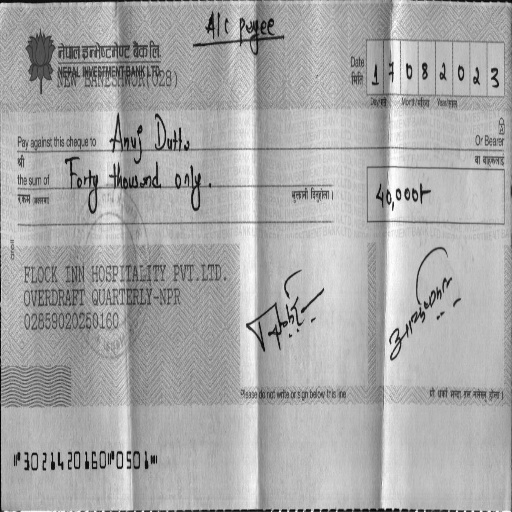 A/c payee
नेपाल इन्भेष्टमेण्ट बैंक लि.
NEPAL INVESTMENT BANK LTD.
NEW BANESHWOR(028)
Date
मिति
1 7 0 8 2 0 2 3
Day/गते Month/महिना Year/साल
Pay against this cheque to Anuj Dutta
Or Bearer
श्री
वा वाहकलाई
the sum of Forty thousand only.
रकम
40,000/-
FLOCK INN HOSPITALITY PVT.LTD.
OVERDRAFT QUARTERLY-NPR
02859020250160
Please do not write or sign below this line
⑈30214201601⑈0501⑈